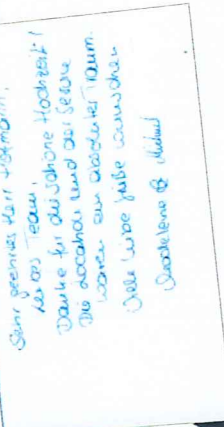 Sehr geehrter Herr Hofmann,
Team,
Danke für die schöne Hochzeit!
Die Location und der Service
waren ein absoluter Traum.
Viele liebe Grüße wünschen
Madeleine & Michael